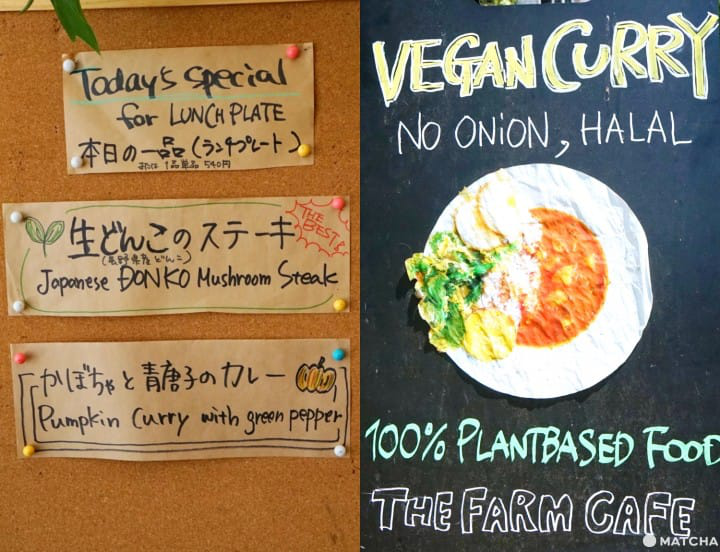 Today's special
for LUNCH PLATE
本日の一品(ランチプレート)
または 1品単品 540円
生どんこのステーキ
(長野県産どんこ)
THE BEST!
Japanese DONKO Mushroom Steak
かぼちゃと青唐子のカレー
Pumpkin Curry with green pepper
VEGAN CURRY
NO ONION, HALAL
100% PLANTBASED FOOD
THE FARM CAFE
MATCHA